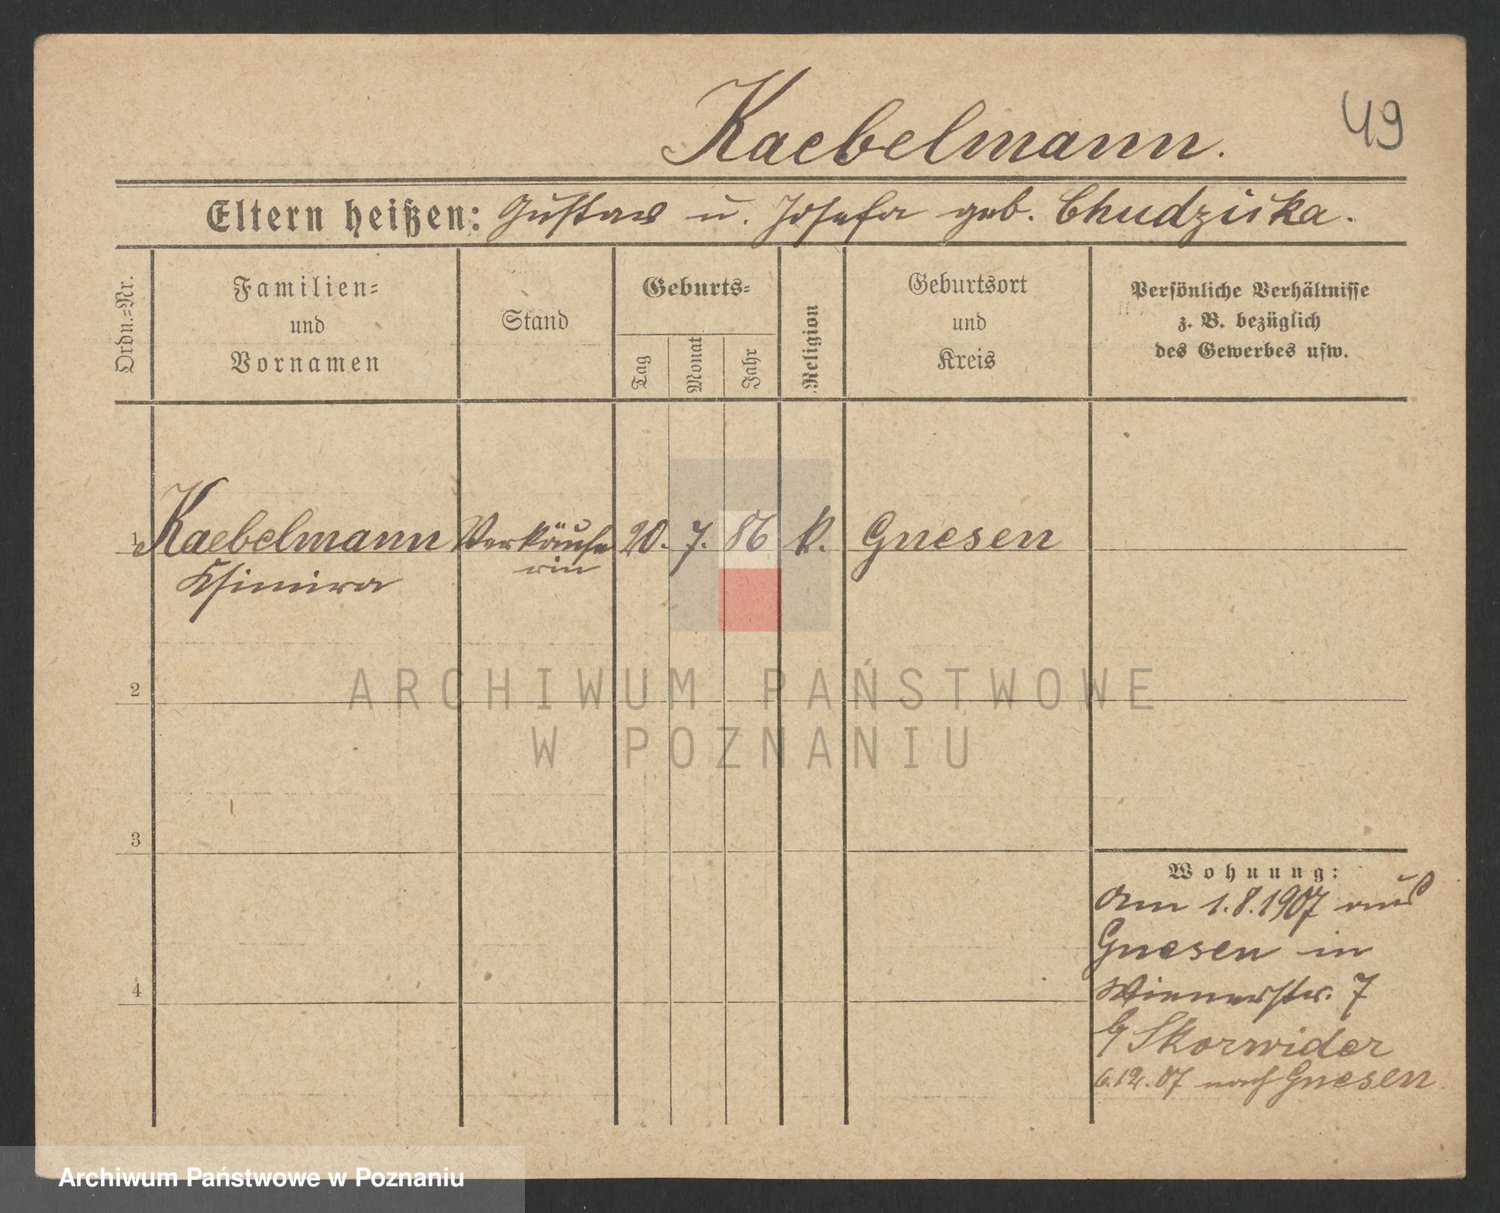 Kaebelmann.
49
Eltern heißen: Gustav u. Josefa geb. Chudzicka.
Ordn.=Nr.
Familien=
und
Vornamen
Stand
Geburts=
Tag
Monat
Jahr
Religion
Geburtsort
und
Kreis
Persönliche Verhältnisse
z. B. bezüglich
des Gewerbes usw.
1 Kaebelmann Verkäufe 20. 7. 86 k. Gnesen
rin
2
3
4
Wohnung:
Am 1.8.1907 aus
Gnesen in
Wienerstr. 7
b/ Skorwider
6.12.07 nach Gnesen
ARCHIWUM PAŃSTWOWE
W POZNANIU
Archiwum Państwowe w Poznaniu